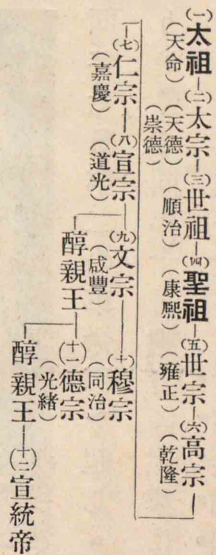 (一)太祖(天命)
(二)太宗(天德)(崇德)
(三)世祖(順治)
(四)聖祖(康熙)
(五)世宗(雍正)
(六)高宗(乾隆)
(七)仁宗(嘉慶)
(八)宣宗(道光)
(九)文宗(咸豐)
(十)穆宗(同治)
醇親王
(十一)德宗(光緒)
醇親王
(十二)宣統帝